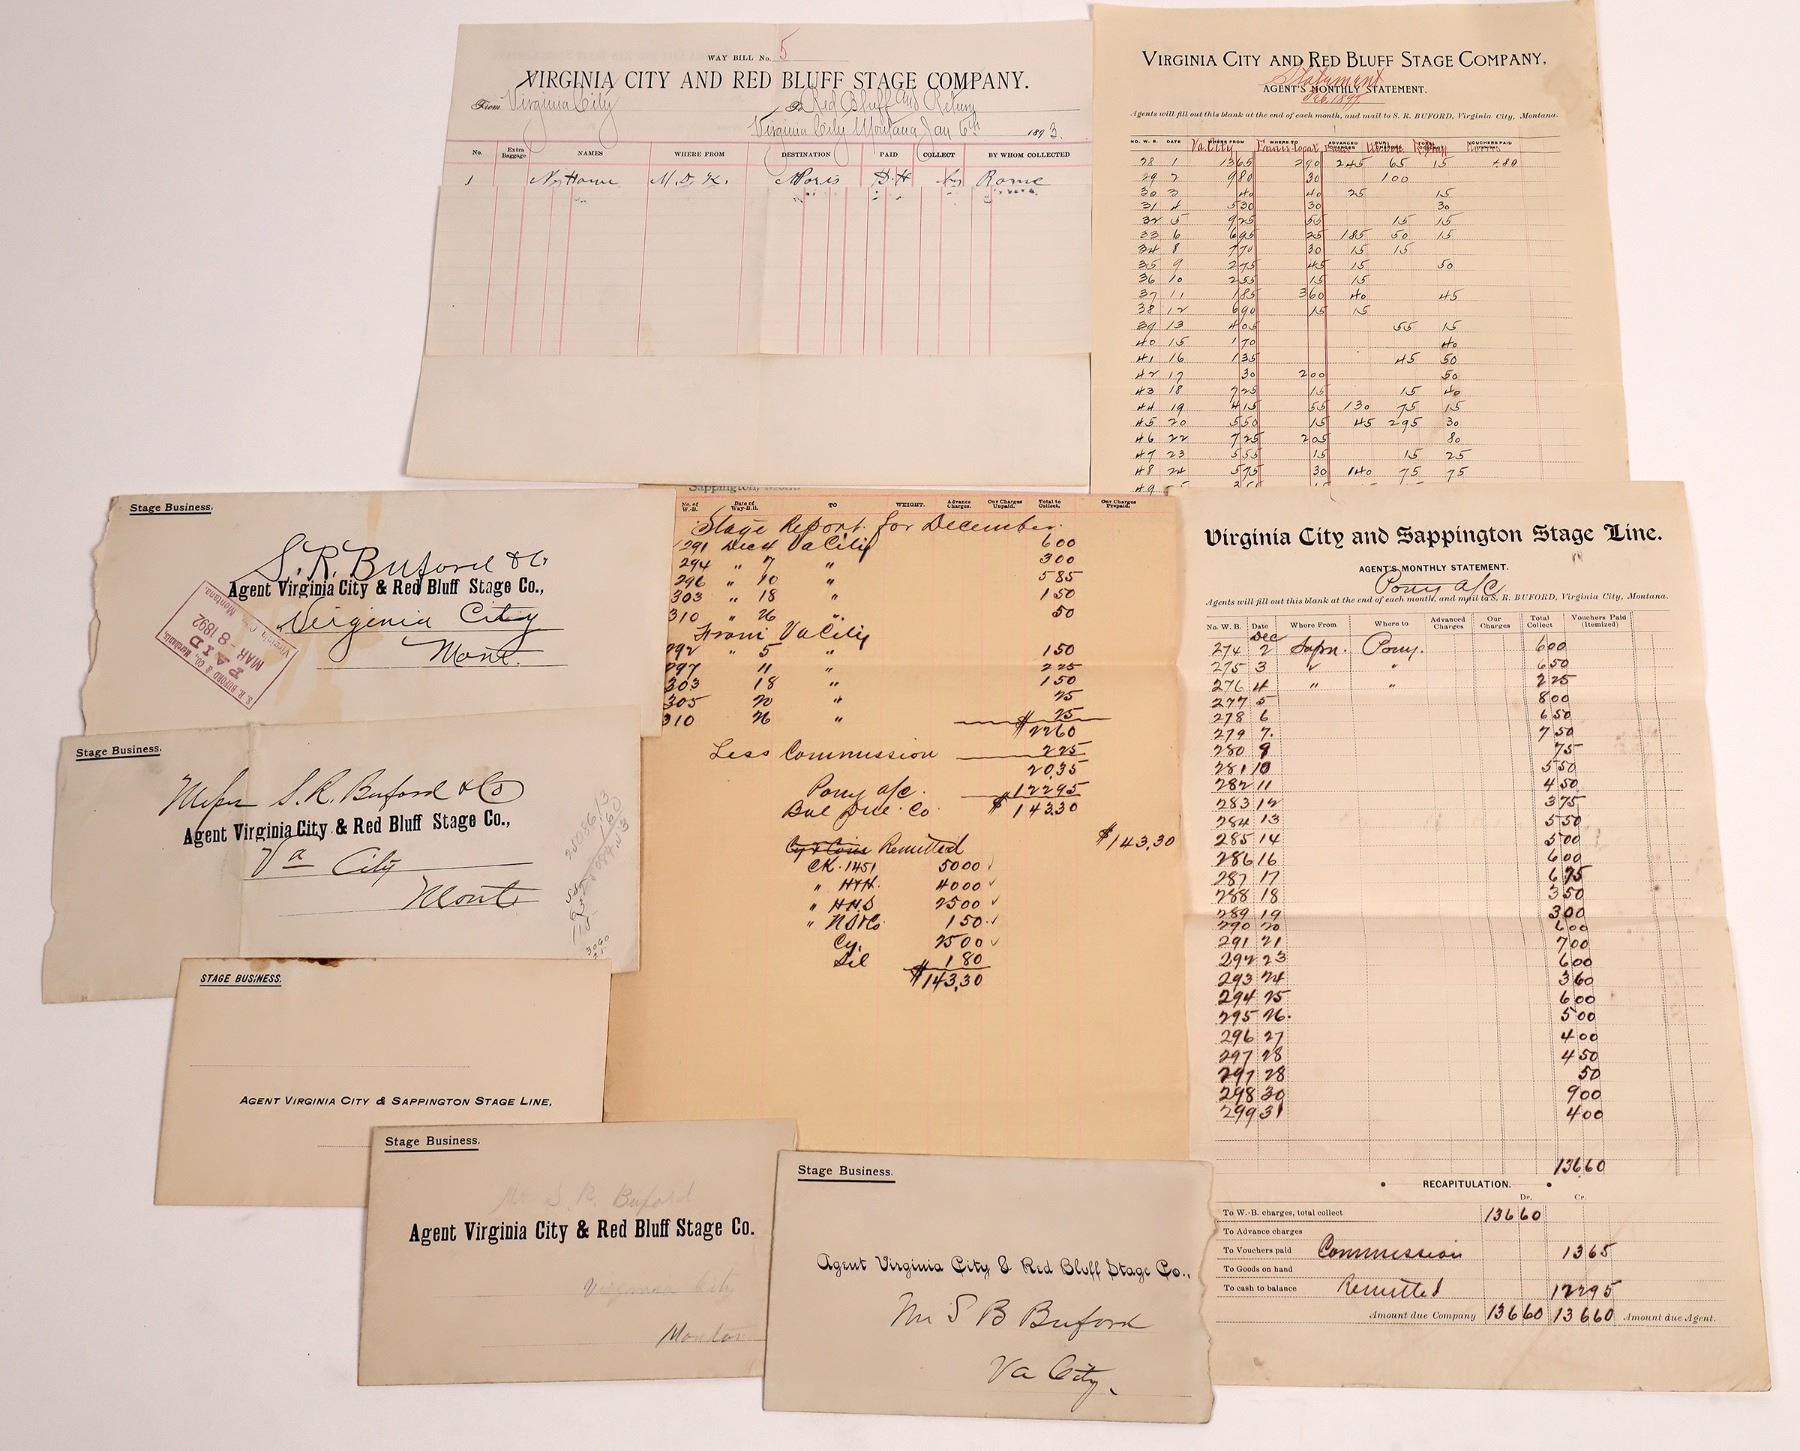 WAY BILL No. 5
VIRGINIA CITY AND RED BLUFF STAGE COMPANY.
From Virginia City To Red Bluff and Return
Virginia City Montana Jan 6th 1893.
No. Extra Baggage NAMES WHERE FROM DESTINATION PAID COLLECT BY WHOM COLLECTED
1
VIRGINIA CITY AND RED BLUFF STAGE COMPANY,
Statement
AGENT'S MONTHLY STATEMENT.
Agents will fill out this blank at the end of each month, and mail to S. R. BUFORD, Virginia City, Montana.
NO. W. B. DATE Va. City
28 1 1365 290 245 65 15 480
29 2 980 30 100
30 3 40 40 25 15
31 4 530 30 30
32 5 925 55 15 15
33 6 695 25 185 50 15
34 8 770 30 15 15
35 9 275 45 15 50
36 10 255 15 15
37 11 185 360 40 45
38 12 690 15 15
39 13 405 55 15
40 15 170 40
41 16 135 45 50
42 17 30 200 50
43 18 725 15 15 40
44 19 415 55 130 75 15
45 20 550 15 45 295 30
46 22 725 205 80
47 23 555 15 15 25
48 24 575 30 140 75 75
Stage Business.
S. R. Buford & Co
Agent Virginia City & Red Bluff Stage Co.,
Virginia City
Mont.
S. R. BUFORD & CO., Merchandise
PAID
MAR - 8 1892
Virginia City, Montana.
Stage Business.
Messrs S. R. Buford & Co
Agent Virginia City & Red Bluff Stage Co.,
Va City
Mont
STAGE BUSINESS.
AGENT VIRGINIA CITY & SAPPINGTON STAGE LINE,
Stage Business.
Mr S. R. Buford
Agent Virginia City & Red Bluff Stage Co.
Virginia City
Montan
Stage Business.
Agent Virginia City & Red Bluff Stage Co.,
Mr S B Buford
Va City.
Sappington,
No. of W.-B. Date of Way-Bill. TO WEIGHT. Advance Charges. Our Charges Unpaid. Total to Collect. Our Charges Prepaid.
Stage Report for December.
291 Dec 4 Va City 600
294 " 7 " 300
296 " 10 " 585
303 " 18 " 150
310 " 26 " 50
From Va City
292 " 5 " 150
297 11 " 225
303 18 " 150
305 20 " 25
310 26 " 25
$2260
Less Commission 225
20.35
Pony a/c. 12295
Bal Due Co. $143.30
Remitted $143.30
Ck. 1451 5000 ✓
" H.T.H. 4000 ✓
" H.H.S 2500 ✓
150 ✓
Cy. 2500 ✓
Sil 1 80
$143.30
Virginia City and Sappington Stage Line.
AGENT'S MONTHLY STATEMENT.
Pony a/c
Agents will fill out this blank at the end of each month, and mail to S. R. BUFORD, Virginia City, Montana.
No. W. B. Date Where From Where to Advanced Charges Our Charges Total Collect Vouchers Paid (Itemized)
Dec
274 2 Sapn. Pony. 600
275 3 " " 650
276 4 " " 225
277 5 800
278 6 650
279 7. 750
280 9 75
281 10 550
282 11 450
283 12 375
284 13 550
285 14 500
286 16 600
287 17 675
288 18 350
289 19 300
290 20 600
291 21 700
292 23 600
293 24 360
294 25 600
295 26. 500
296 27 400
297 28 450
297 28 50
298 30 900
299 31 400
136.60
RECAPITULATION.
Dr. Cr.
To W.-B. charges, total collect 13660
To Advance charges
To Vouchers paid Commission 1365
To Goods on hand
To cash to balance Remitted 12295
Amount due Company 13660 13660 Amount due Agent.